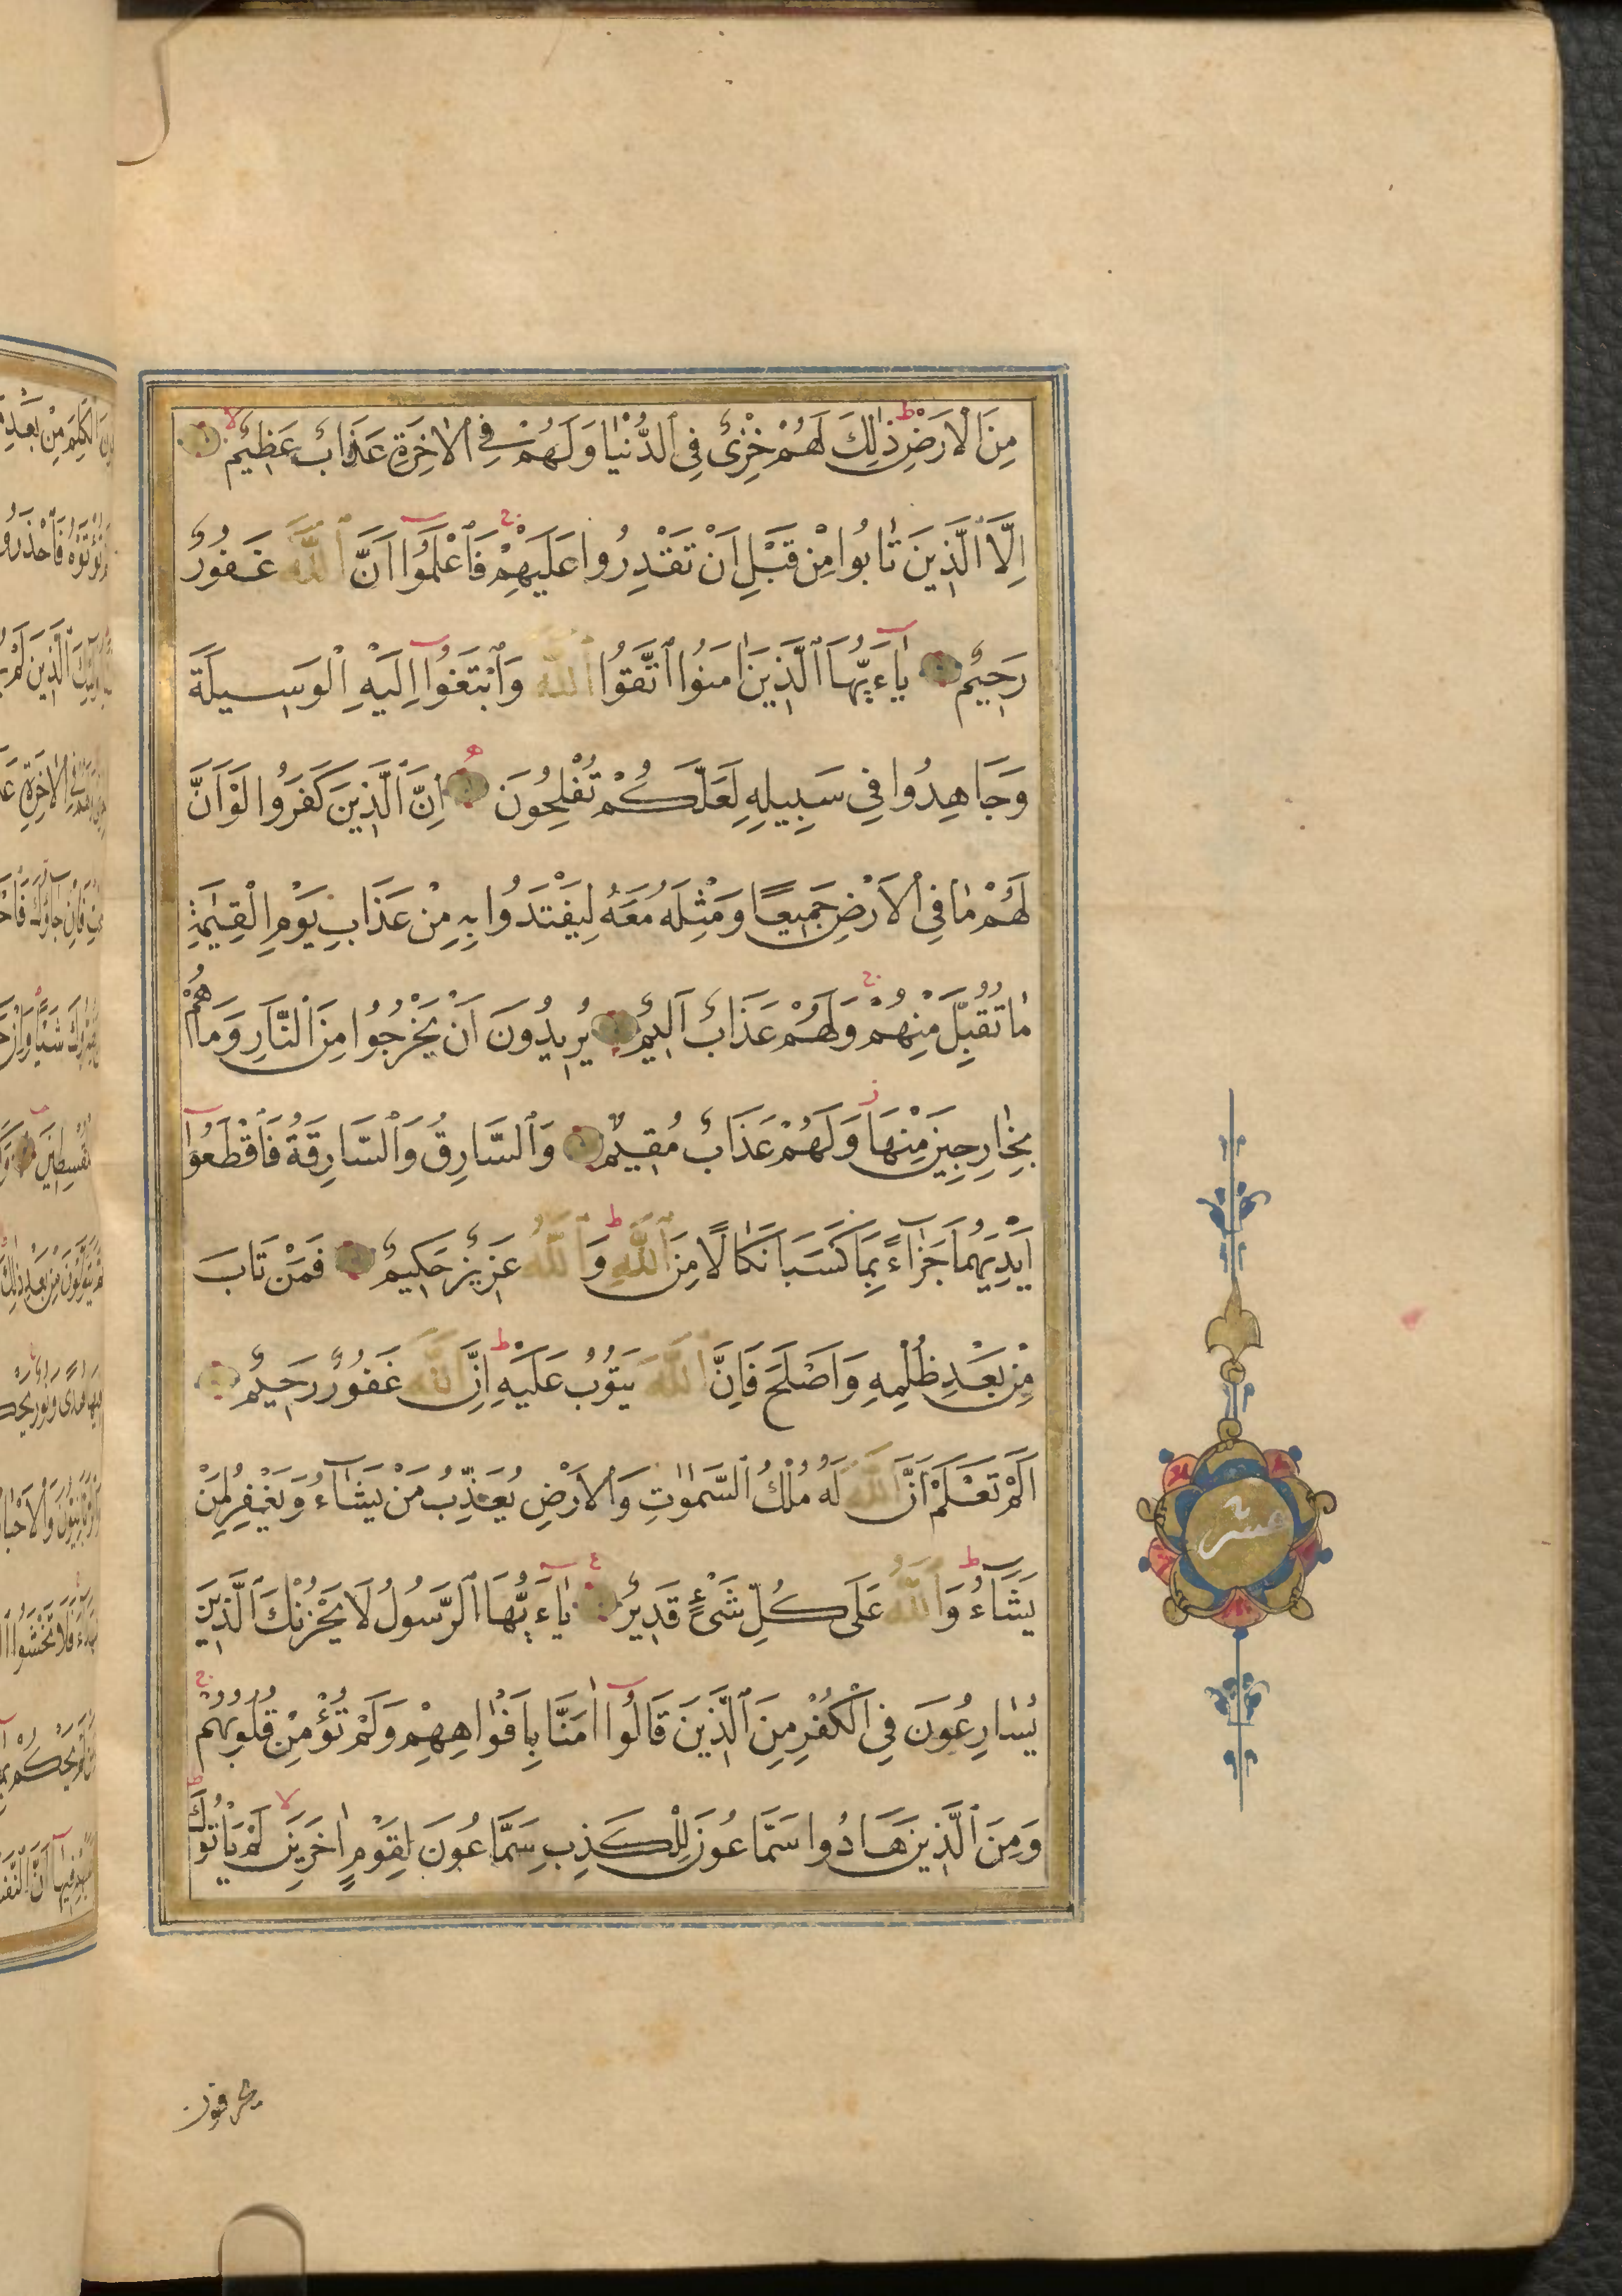 مِنَ الْاَرْضِ ذٰلِكَ لَهُمْ خِزْىٌ فِى الدُّنْيَا وَلَهُمْ فِى الْاٰخِرَةِ عَذَابٌ عَظِيمٌ
اِلَّا الَّذِينَ تَابُوا مِنْ قَبْلِ اَنْ تَقْدِرُوا عَلَيْهِمْ فَاعْلَمُوا اَنَّ اللّٰهَ غَفُورٌ
رَحِيمٌ يٰاءَيُّهَا الَّذِينَ اٰمَنُوا اتَّقُوا اللّٰهَ وَابْتَغُوا اِلَيْهِ الْوَسِيلَةَ
وَجَاهِدُوا فِى سَبِيلِهِ لَعَلَّكُمْ تُفْلِحُونَ اِنَّ الَّذِينَ كَفَرُوا لَوْ اَنَّ
لَهُمْ مَا فِى الْاَرْضِ جَمِيعًا وَمِثْلَهُ مَعَهُ لِيَفْتَدُوا بِهِ مِنْ عَذَابِ يَوْمِ الْقِيٰمَةِ
مَا تُقُبِّلَ مِنْهُمْ وَلَهُمْ عَذَابٌ اَلِيمٌ يُرِيدُونَ اَنْ يَخْرُجُوا مِنَ النَّارِ وَمَا هُمْ
بِخَارِجِينَ مِنْهَا وَلَهُمْ عَذَابٌ مُقِيمٌ وَالسَّارِقُ وَالسَّارِقَةُ فَاقْطَعُوا
اَيْدِيَهُمَا جَزَاءً بِمَا كَسَبَا نَكَالًا مِنَ اللّٰهِ وَاللّٰهُ عَزِيزٌ حَكِيمٌ فَمَنْ تَابَ
مِنْ بَعْدِ ظُلْمِهِ وَاَصْلَحَ فَاِنَّ اللّٰهَ يَتُوبُ عَلَيْهِ اِنَّ اللّٰهَ غَفُورٌ رَحِيمٌ
اَلَمْ تَعْلَمْ اَنَّ اللّٰهَ لَهُ مُلْكُ السَّمٰوٰتِ وَالْاَرْضِ يُعَذِّبُ مَنْ يَشَاءُ وَيَغْفِرُ لِمَنْ
يَشَاءُ وَاللّٰهُ عَلَى كُلِّ شَىْءٍ قَدِيرٌ يٰاءَيُّهَا الرَّسُولُ لَا يَحْزُنْكَ الَّذِينَ
يُسَارِعُونَ فِى الْكُفْرِ مِنَ الَّذِينَ قَالُوا اٰمَنَّا بِاَفْوَاهِهِمْ وَلَمْ تُؤْمِنْ قُلُوبُهُمْ
وَمِنَ الَّذِينَ هَادُوا سَمَّاعُونَ لِلْكَذِبِ سَمَّاعُونَ لِقَوْمٍ اٰخَرِينَ لَمْ يَاْتُوكَ
عشر
يحرفون